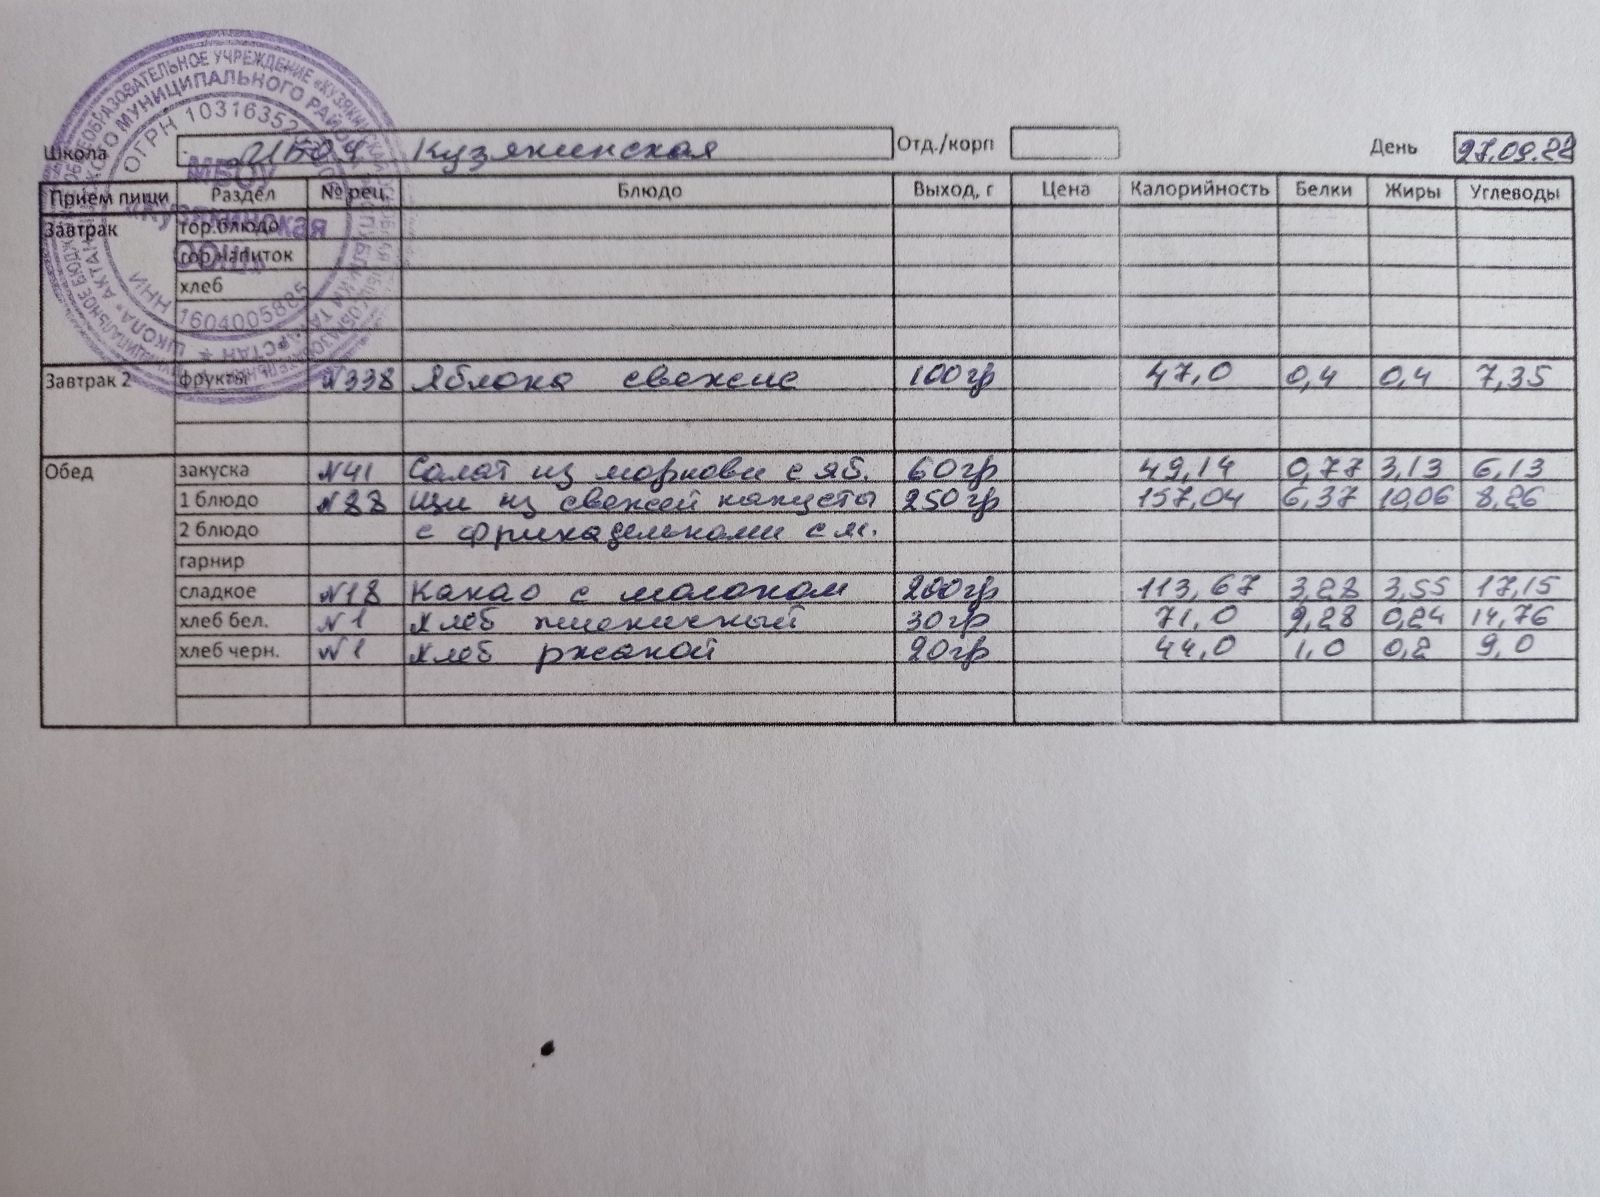 Школа МБОУ Кузякинская Отд./корп День 27.09.22
Прием пищи Раздел № рец. Блюдо Выход, г Цена Калорийность Белки Жиры Углеводы
Завтрак гор.блюдо
гор.напиток
хлеб
Завтрак 2 фрукты №338 Яблока свежие 100гр 47,0 0,4 0,4 7,35
Обед закуска №41 Салат из моркови с яб. 60гр 49,14 0,77 3,13 6,13
1 блюдо №88 Щи из свежей капусты 250гр 157,04 6,37 10,06 8,26
2 блюдо с фрикадельками с м.
гарнир
сладкое №18 Какао с молоком 200гр 113,67 3,28 3,55 17,15
хлеб бел. №1 Хлеб пшеничный 30гр 71,0 2,28 0,24 14,76
хлеб черн. №1 Хлеб ржаной 20гр 44,0 1,0 0,2 9,0
МБОУ
«Кузякинская
ООШ»
ОГРН 10316352
ИНН 1604005885